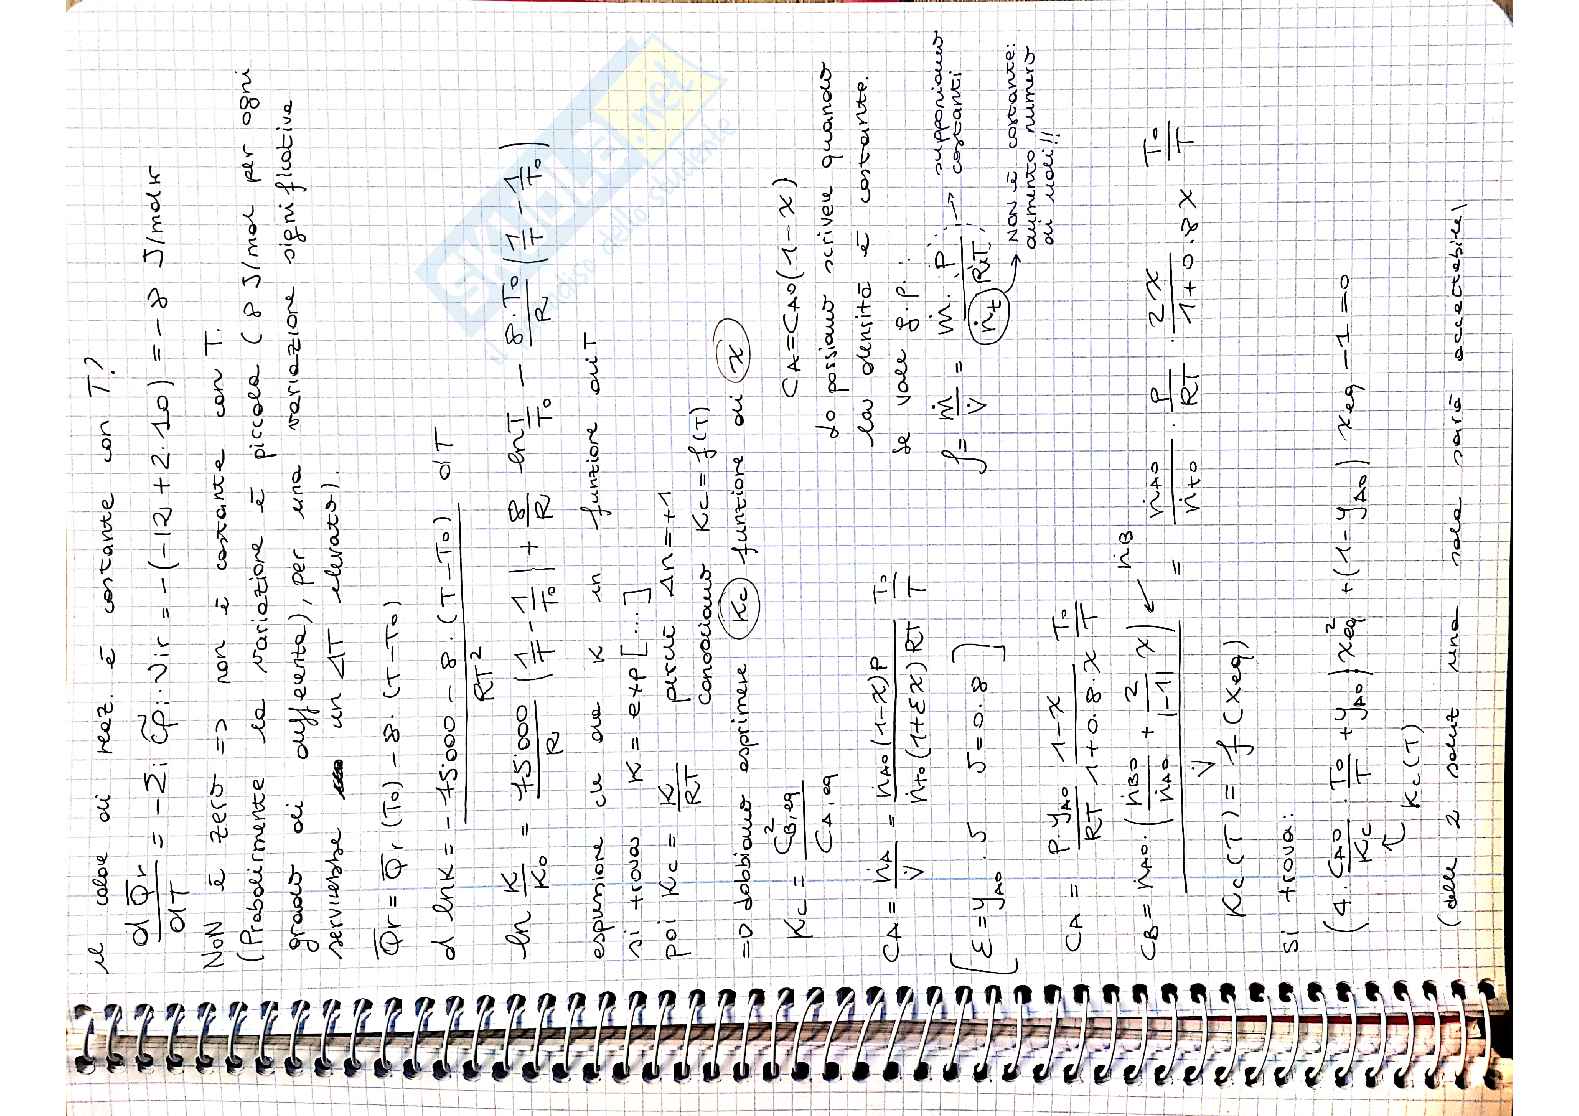 il calore di reaz. è costante con T?
dQ̄r/dT = -Σi c̃pi·νir = -(-12+2·10) = -8 J/molK
NON è zero => non è costante con T.
(Probabilmente la variazione è piccola (8 J/mol per ogni
grado di differenza), per una variazione significativa
servirebbe un ΔT elevato).
Q̄r = Q̄r(T0) - 8·(T-T0)
d lnK = - (-75000 - 8·(T-T0))/RT² dT
ln K/K0 = 75000/R (1/T - 1/T0) + 8/R ln T/T0 - 8·T0/R (1/T - 1/T0)
espressione che dà K in funzione di T
si trova K = exp[....]
poi Kc = K/RT perché Δn=+1
conosciamo Kc = f(T)
=> dobbiamo esprimere Kc funzione di x
Kc = C²B,eq/CA,eq
CA=CA0(1-x)
Lo possiamo scrivere quando
la densità è costante.
Se vale g.p.:
ρ = ṁ/V̇ = ṁ·P/ṅt RT, → supponiamo costanti
→ NON è costante:
aumento numero
di moli!!
CA = ṅA/V̇ = ṅA0(1-x)P/ṅt0(1+εx)RT T0/T
[ε=yA0·δ δ=0.8]
CA = P·yA0/RT 1-x/1+0.8·x T0/T
CB = ṅA0·(ṅB0/ṅA0 + 2/|-1| x)/V̇ ← ṅB = ṅA0/ṅt0 · P/RT · 2x/1+0.8x T0/T
Kc(T) = f(xeq)
Si trova:
(4·CA0/Kc·T0/T + yA0)x²eq + (1-yA0)xeq - 1 = 0
Kc(T)
(delle 2 soluz una sola sarà accettabile)
SKUOLA.net
dello studente